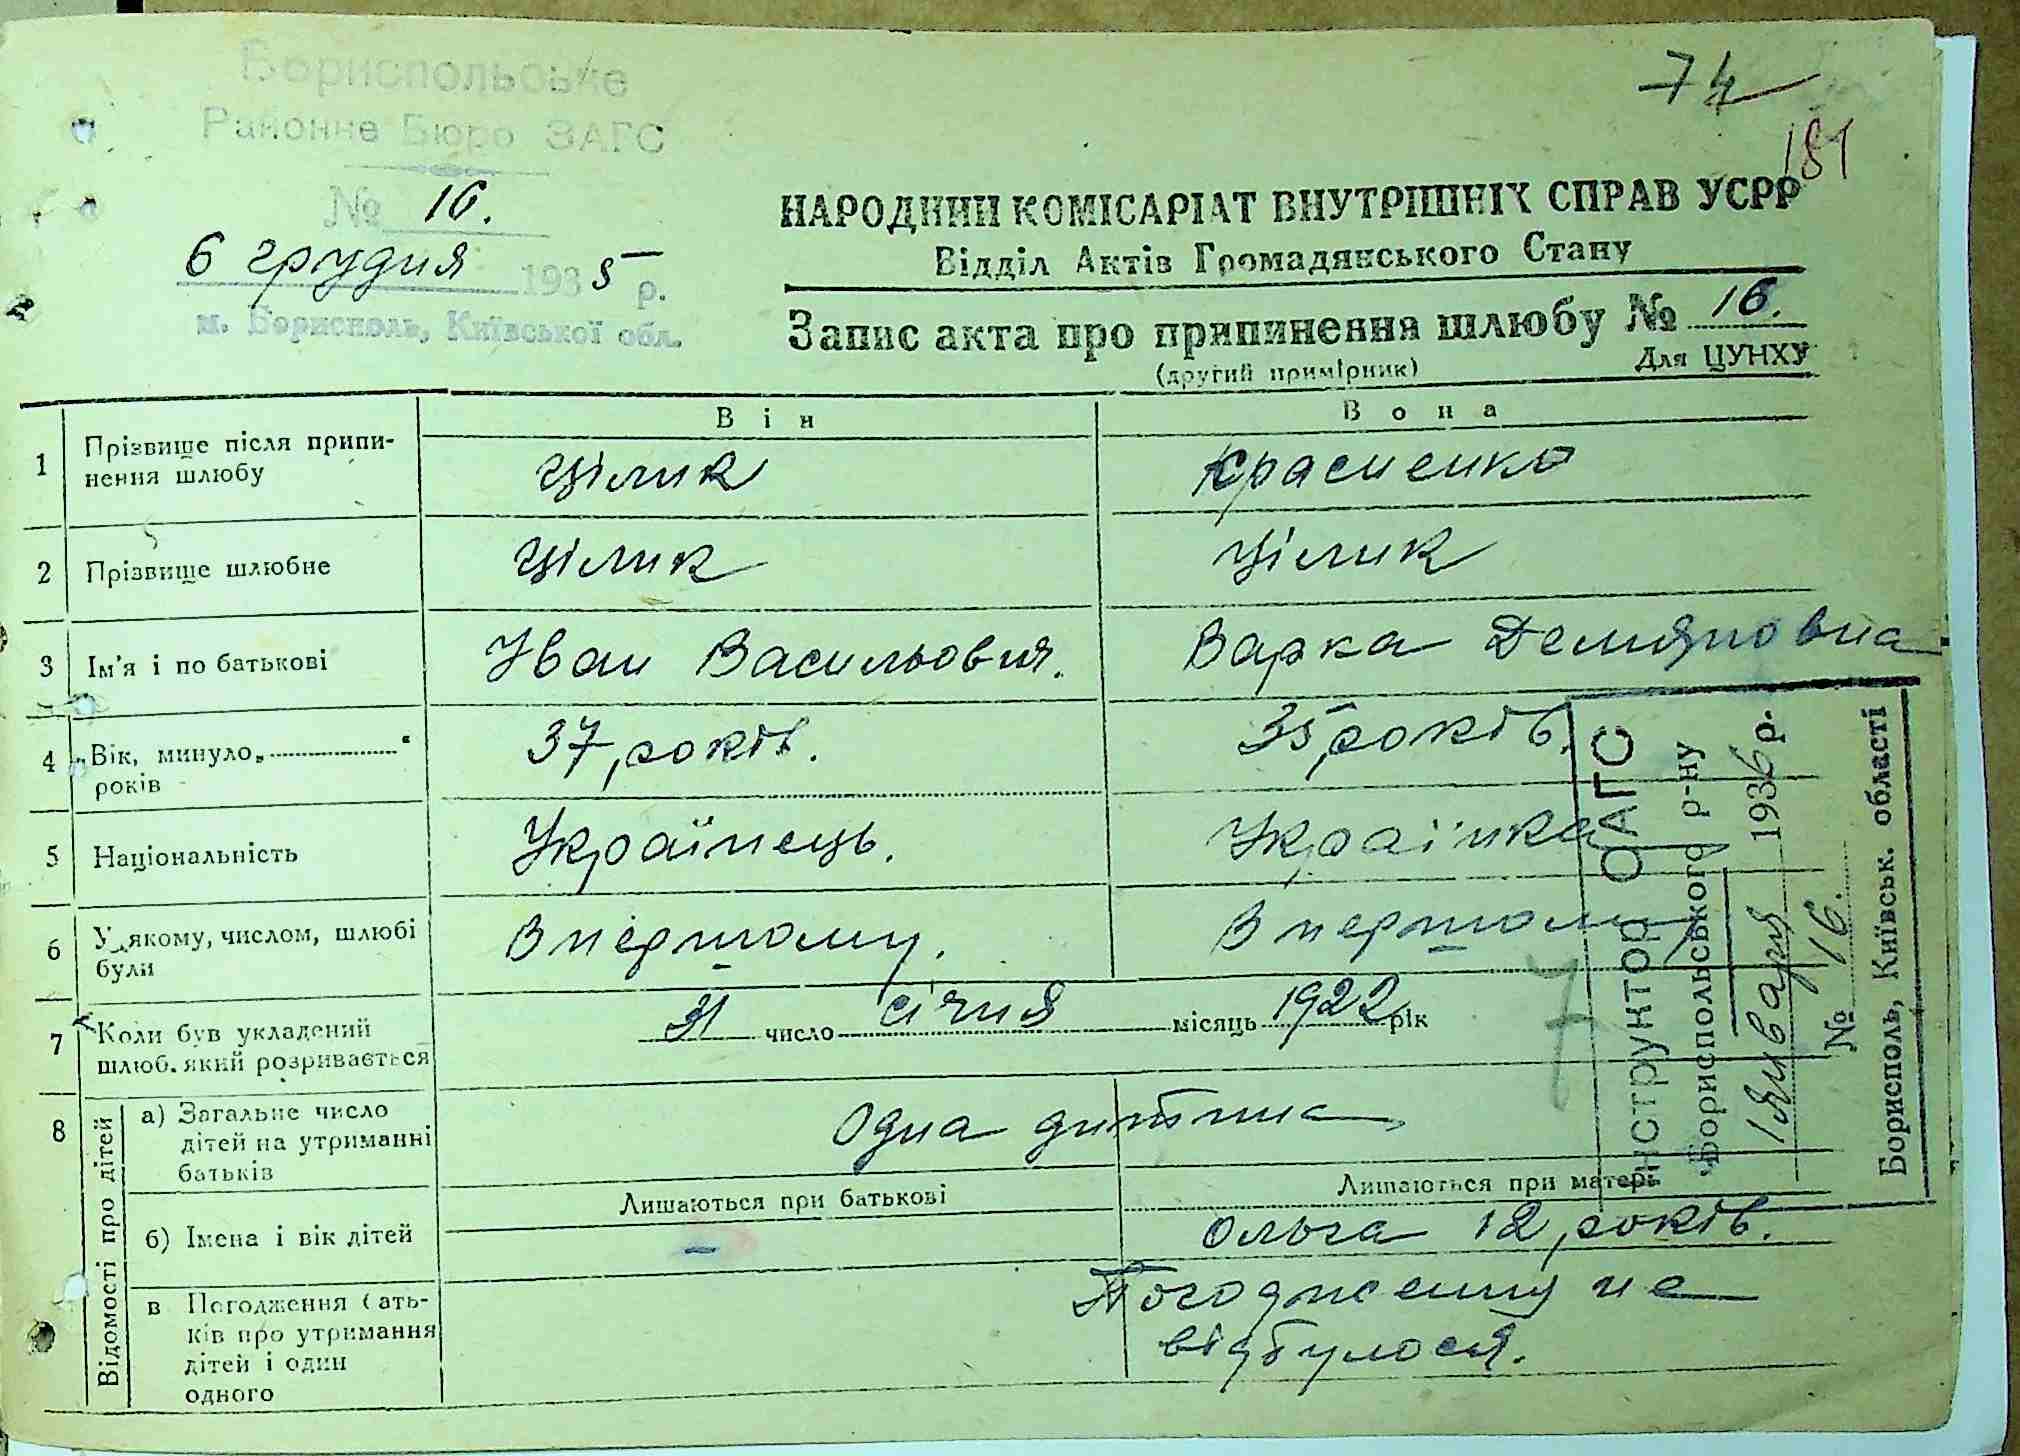 Бориспольське
Районне Бюро ЗАГС
№ 16.
6 грудня 1935 р.
м. Бориспіль, Київської обл.
74
181
НАРОДНИЙ КОМІСАРІАТ ВНУТРІШНІХ СПРАВ УСРР
Відділ Актів Громадянського Стану
Запис акта про припинення шлюбу № 16.
(другий примірник)
Для ЦУНХУ
Він
Вона
1 Прізвище після припи-
нення шлюбу
Цілик
Красненко
2 Прізвище шлюбне
Цілик
Цілик
3 Ім'я і по батькові
Іван Васильович.
Варка Демяновна
4 Вік, минуло „ “
років
37, років.
35, років.
5 Національність
Українець.
Українка
6 У якому, числом, шлюбі
були
В першому.
В першому
7 Коли був укладений
шлюб, який розривається
31 число січня місяць 1922 рік
8 Відомості про дітей
а) Загальне число
дітей на утриманні
батьків
Одна дитина
Лишаються при батькові
Лишаються при матері
б) Імена і вік дітей
–
Ольга 12, років.
в Погодження бать-
ків про утримання
дітей і один
одного
Погодження не
відбулося.
Інструктор ОАГС
Бориспольського р-ну
1 января 1936 р.
№ 16.
Бориспіль, Київськ. області
7